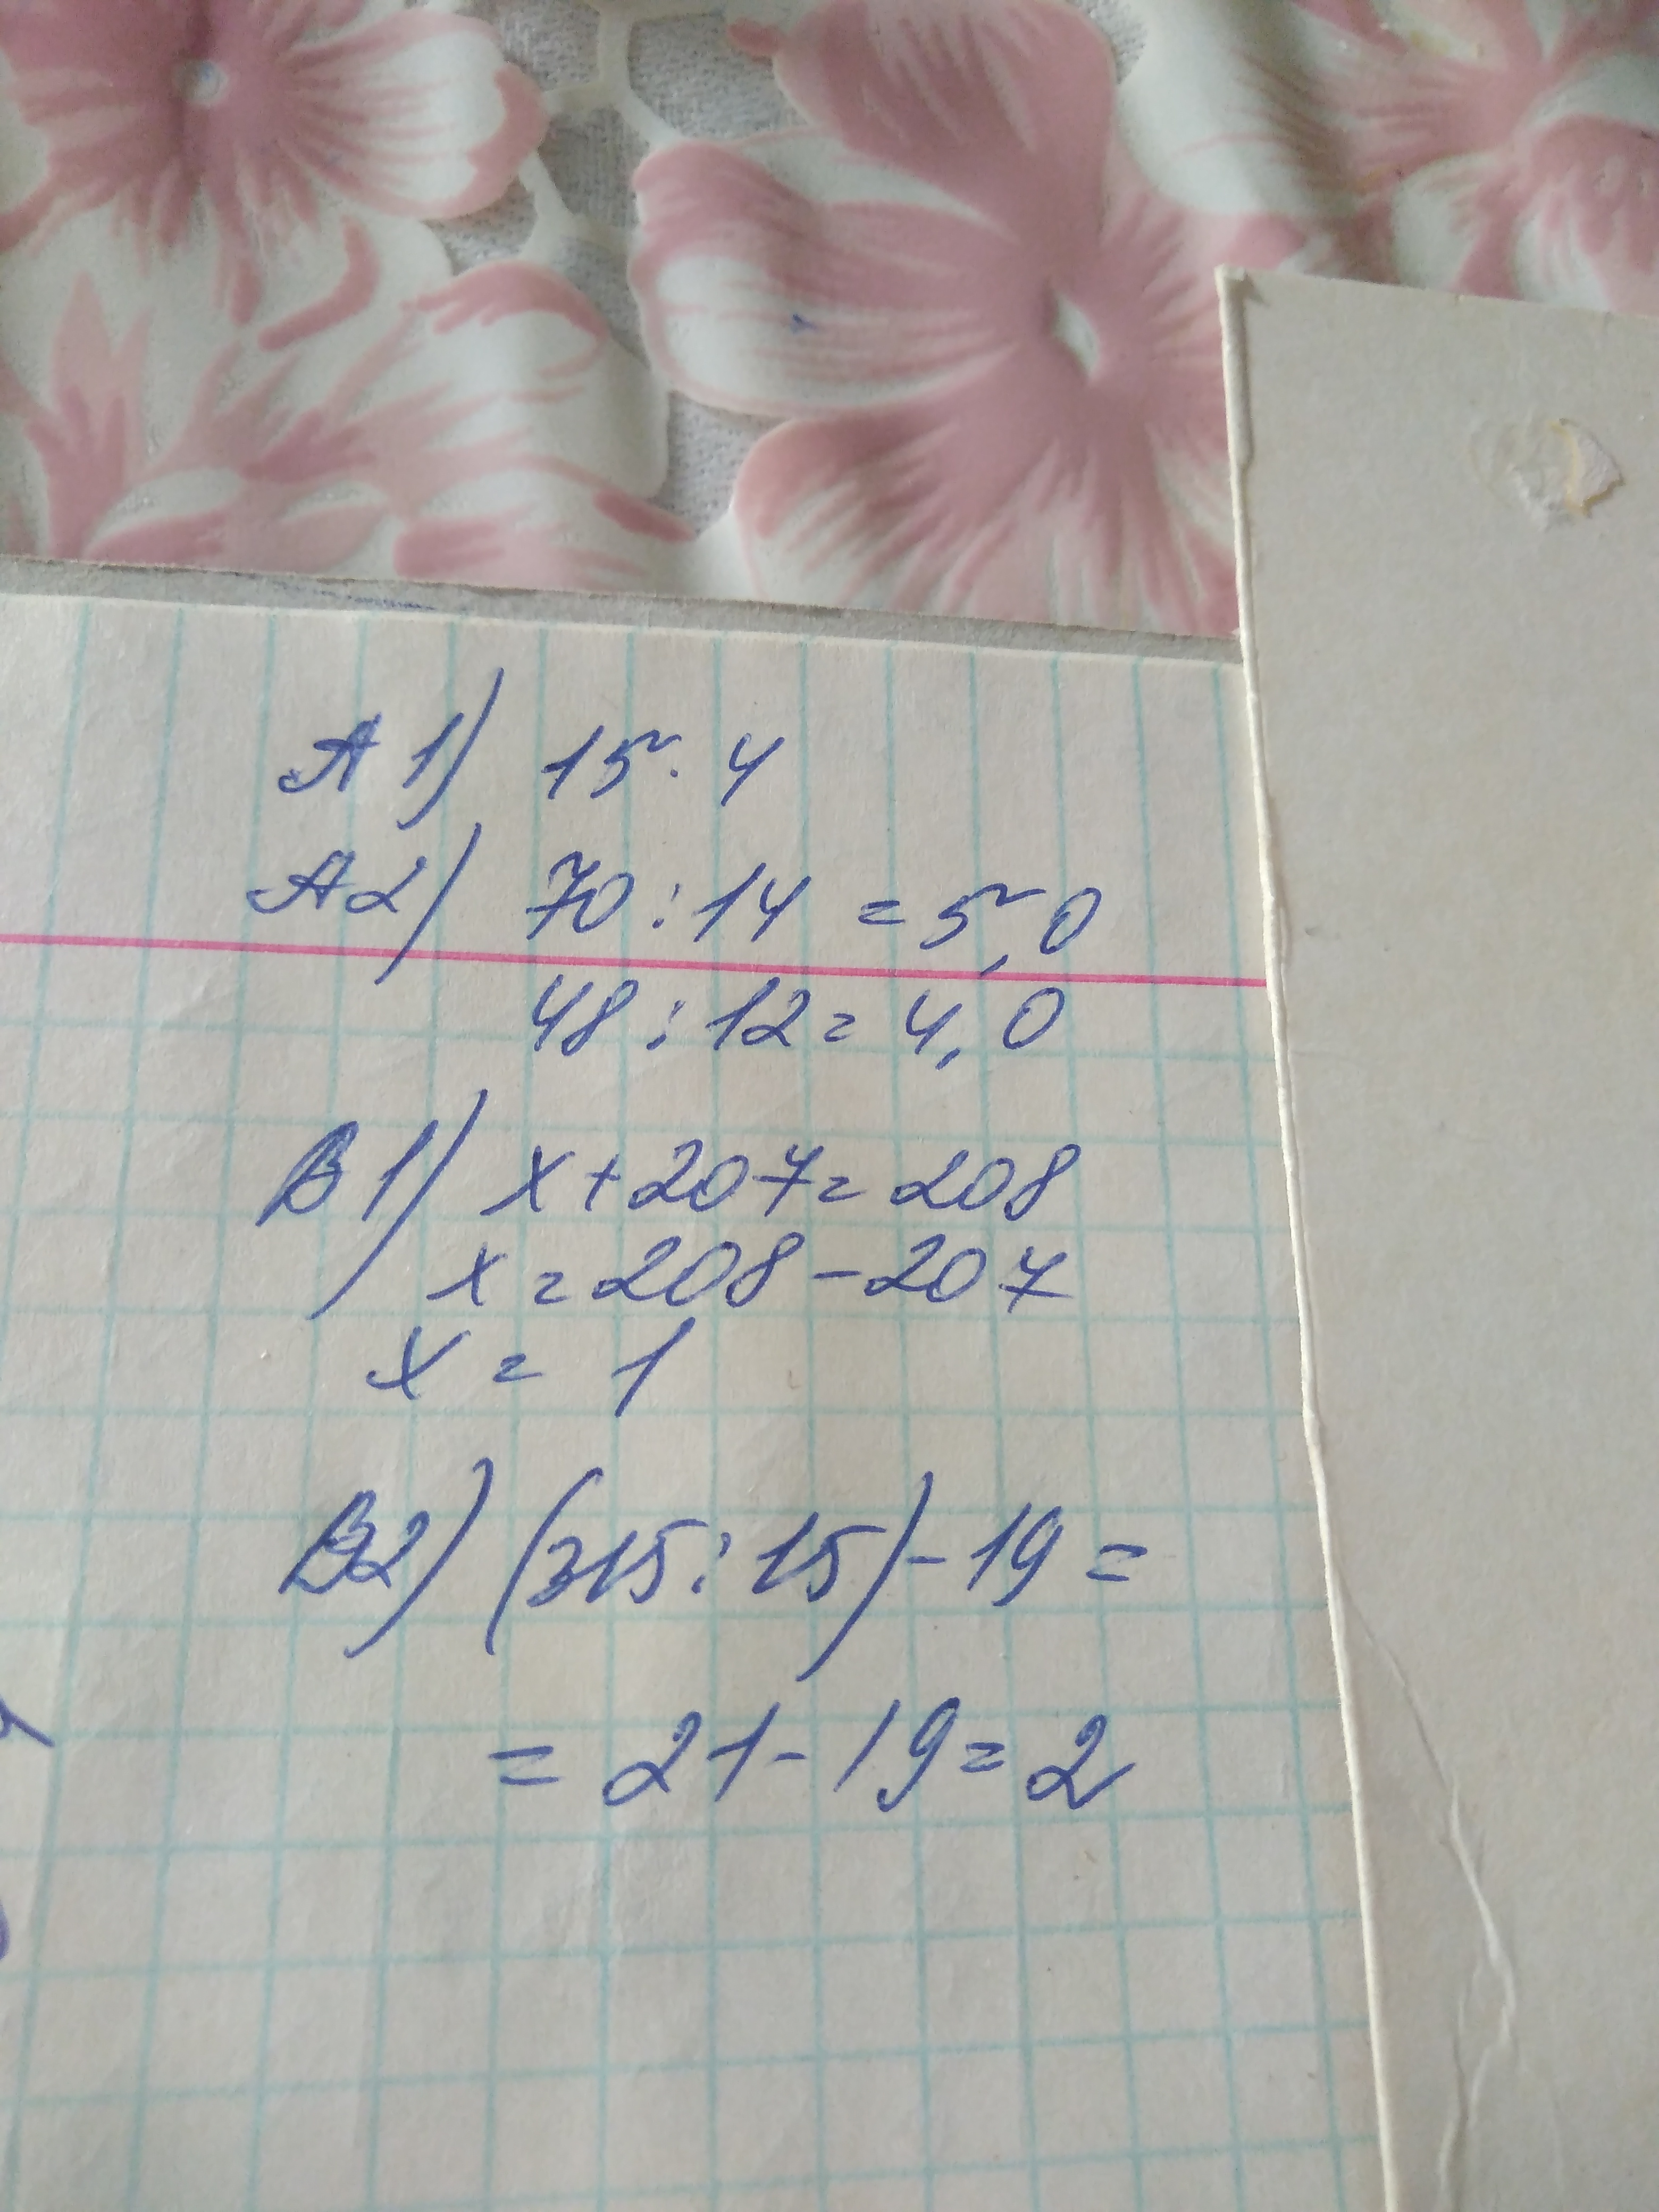 А 1) 15 · 4
А2) 70 : 14 = 5,0
48 : 12 = 4,0
В 1) x + 207 = 208
x = 208 - 207
x = 1
В2) (315 : 15) - 19 =
= 21 - 19 = 2